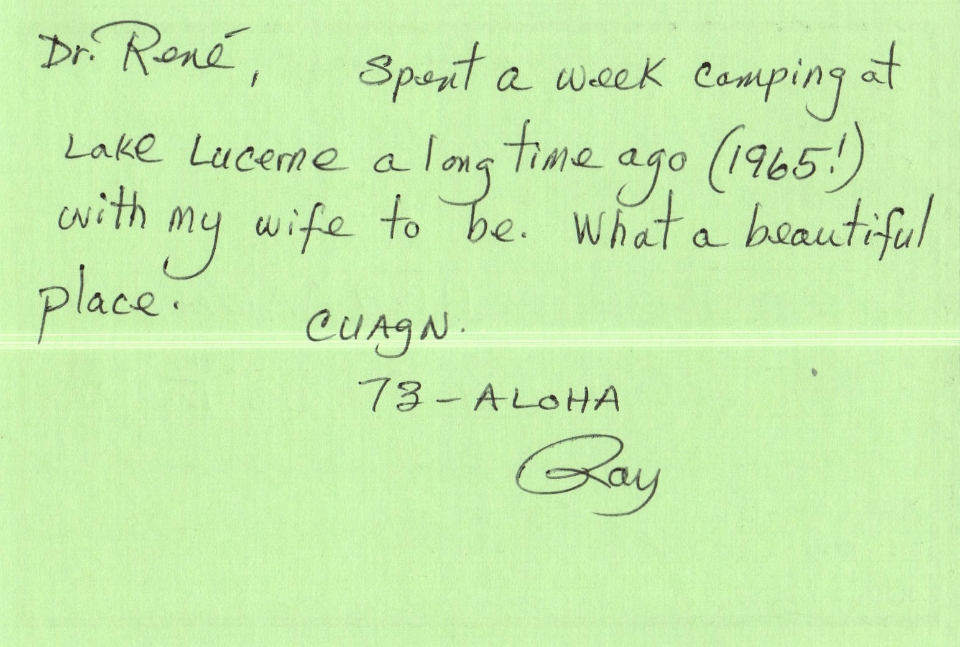 Dr. René, Spent a week camping at
Lake Lucerne a long time ago (1965!)
with my wife to be. What a beautiful
place.
CUAgN.
73 - ALOHA
Ray